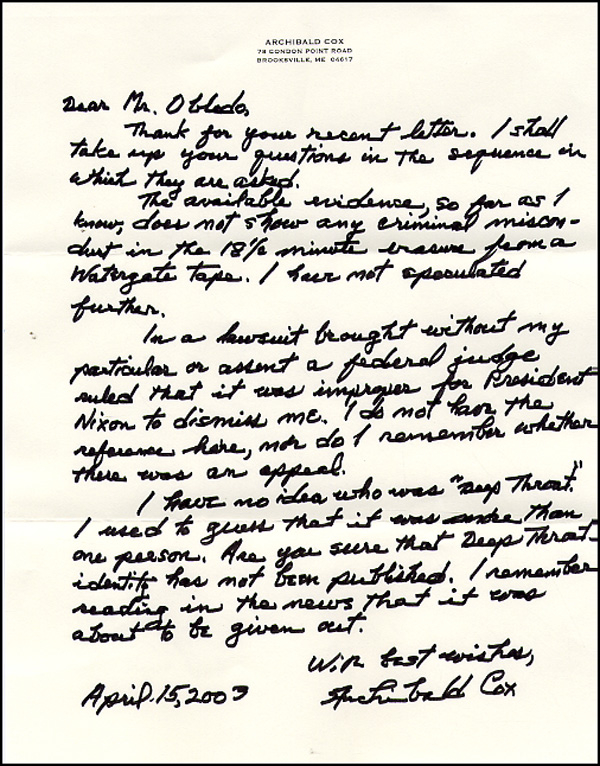 ARCHIBALD COX
78 CONDON POINT ROAD
BROOKSVILLE, ME 04617
Dear Mr. Obledo,
Thank for your recent letter. I shall
take up your questions in the sequence in
which they are asked.
The available evidence, so far as I
know, does not show any criminal miscon-
duct in the 18½ minute erasure from a
Watergate Tape. I have not speculated
further.
In a lawsuit brought without my
particular or assent a federal judge
ruled that it was improper for President
Nixon to dismiss me. I do not have the
reference here, nor do I remember whether
there was an appeal.
I have no idea who was "Deep Throat."
I used to guess that it was more than
one person. Are you sure that Deep Throat
identity has not been published. I remember
reading in the news that it was
about to be given out.
With best wishes,
April 15, 2003 Archibald Cox